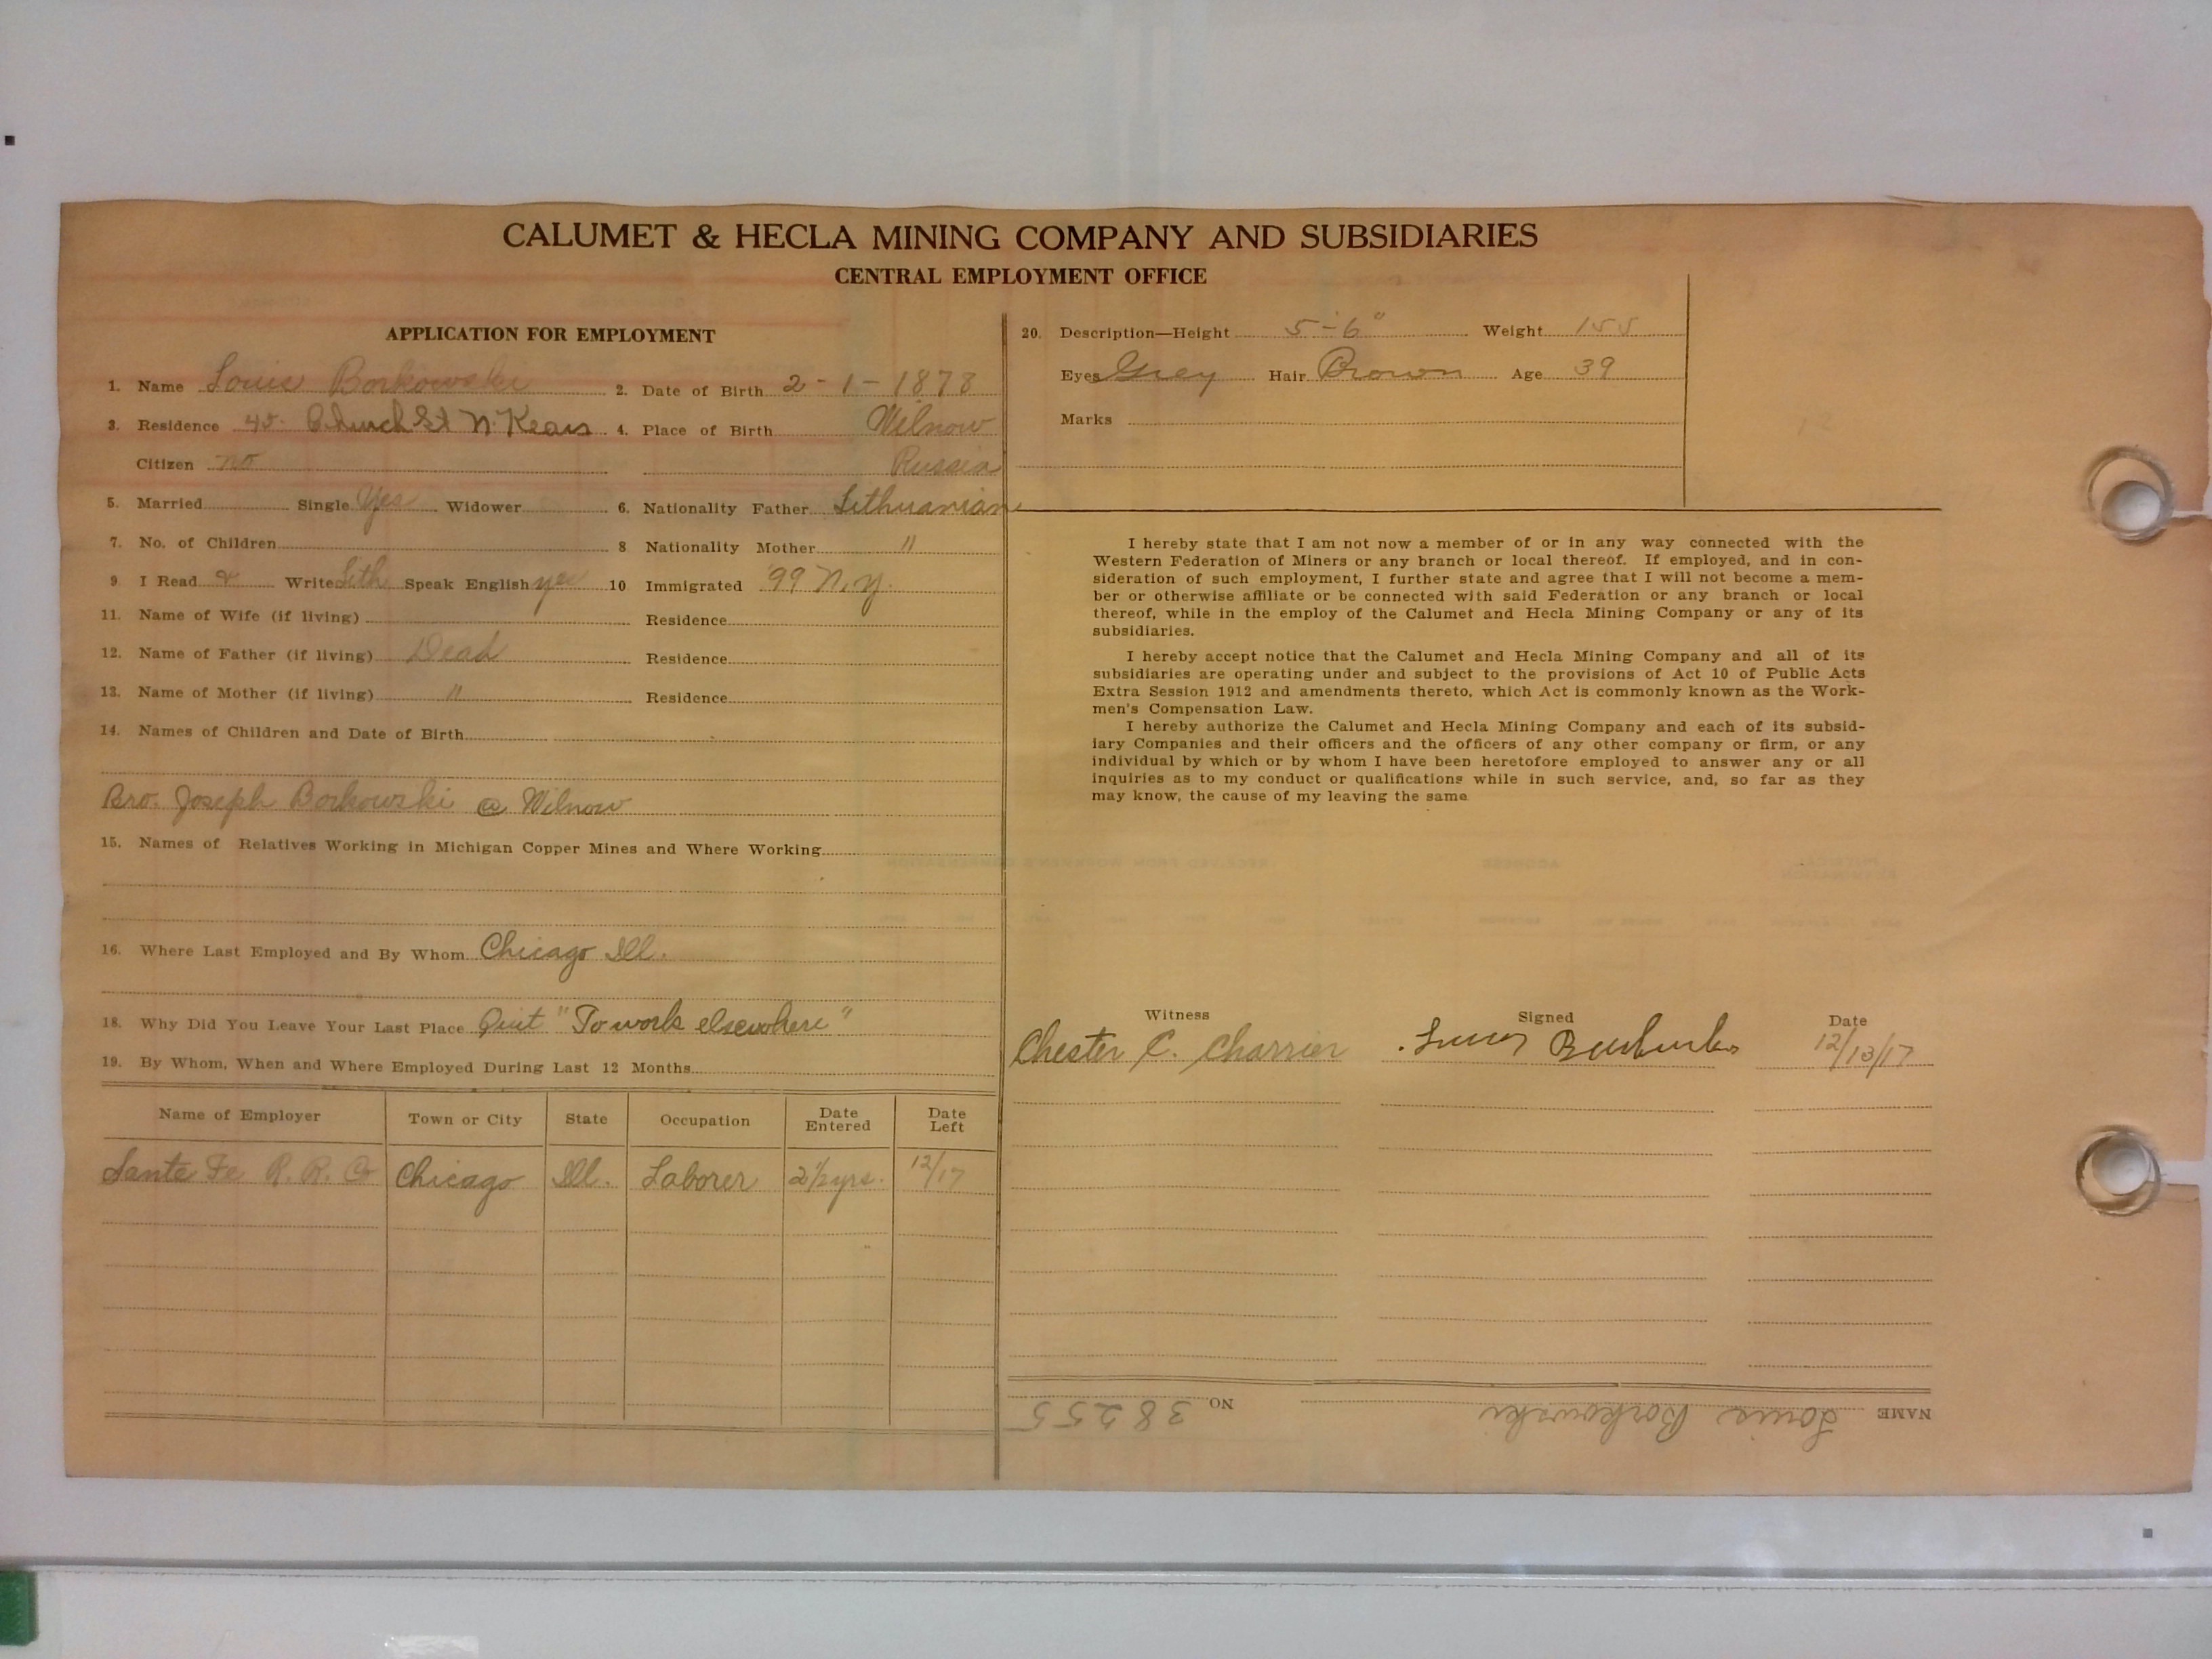 CALUMET & HECLA MINING COMPANY AND SUBSIDIARIES
CENTRAL EMPLOYMENT OFFICE
APPLICATION FOR EMPLOYMENT
1. Name Louis Borkowski 2. Date of Birth 2-1-1878
3. Residence 45 Church St N. Kears 4. Place of Birth Wilnow
Citizen no Russia
5. Married Single Yes Widower 6. Nationality Father Lithuanian
7. No. of Children 8 Nationality Mother "
9 I Read & Write Lith Speak English yes 10 Immigrated '99 N.Y.
11. Name of Wife (if living) Residence
12. Name of Father (if living) Dead Residence
13. Name of Mother (if living) " Residence
14. Names of Children and Date of Birth
Bro. Joseph Borkowski @ Wilnow
15. Names of Relatives Working in Michigan Copper Mines and Where Working
16. Where Last Employed and By Whom Chicago Ill.
18. Why Did You Leave Your Last Place Quit "To work elsewhere"
19. By Whom, When and Where Employed During Last 12 Months
Name of Employer Town or City State Occupation Date Entered Date Left
Sante Fe R. R. Co Chicago Ill. Laborer 2½ yrs. 12/17
20. Description—Height 5-6" Weight 155
Eyes Grey Hair Brown Age 39
Marks
I hereby state that I am not now a member of or in any way connected with the
Western Federation of Miners or any branch or local thereof. If employed, and in con-
sideration of such employment, I further state and agree that I will not become a mem-
ber or otherwise affiliate or be connected with said Federation or any branch or local
thereof, while in the employ of the Calumet and Hecla Mining Company or any of its
subsidiaries.
I hereby accept notice that the Calumet and Hecla Mining Company and all of its
subsidiaries are operating under and subject to the provisions of Act 10 of Public Acts
Extra Session 1912 and amendments thereto, which Act is commonly known as the Work-
men's Compensation Law.
I hereby authorize the Calumet and Hecla Mining Company and each of its subsid-
iary Companies and their officers and the officers of any other company or firm, or any
individual by which or by whom I have been heretofore employed to answer any or all
inquiries as to my conduct or qualifications while in such service, and, so far as they
may know, the cause of my leaving the same
Witness Signed Date
Chester C. Charrier 12/13/17
NAME Louis Borkowski NO. 38255